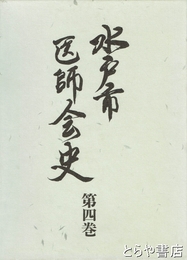 水戸市
医師会史
第四巻
とらや書店